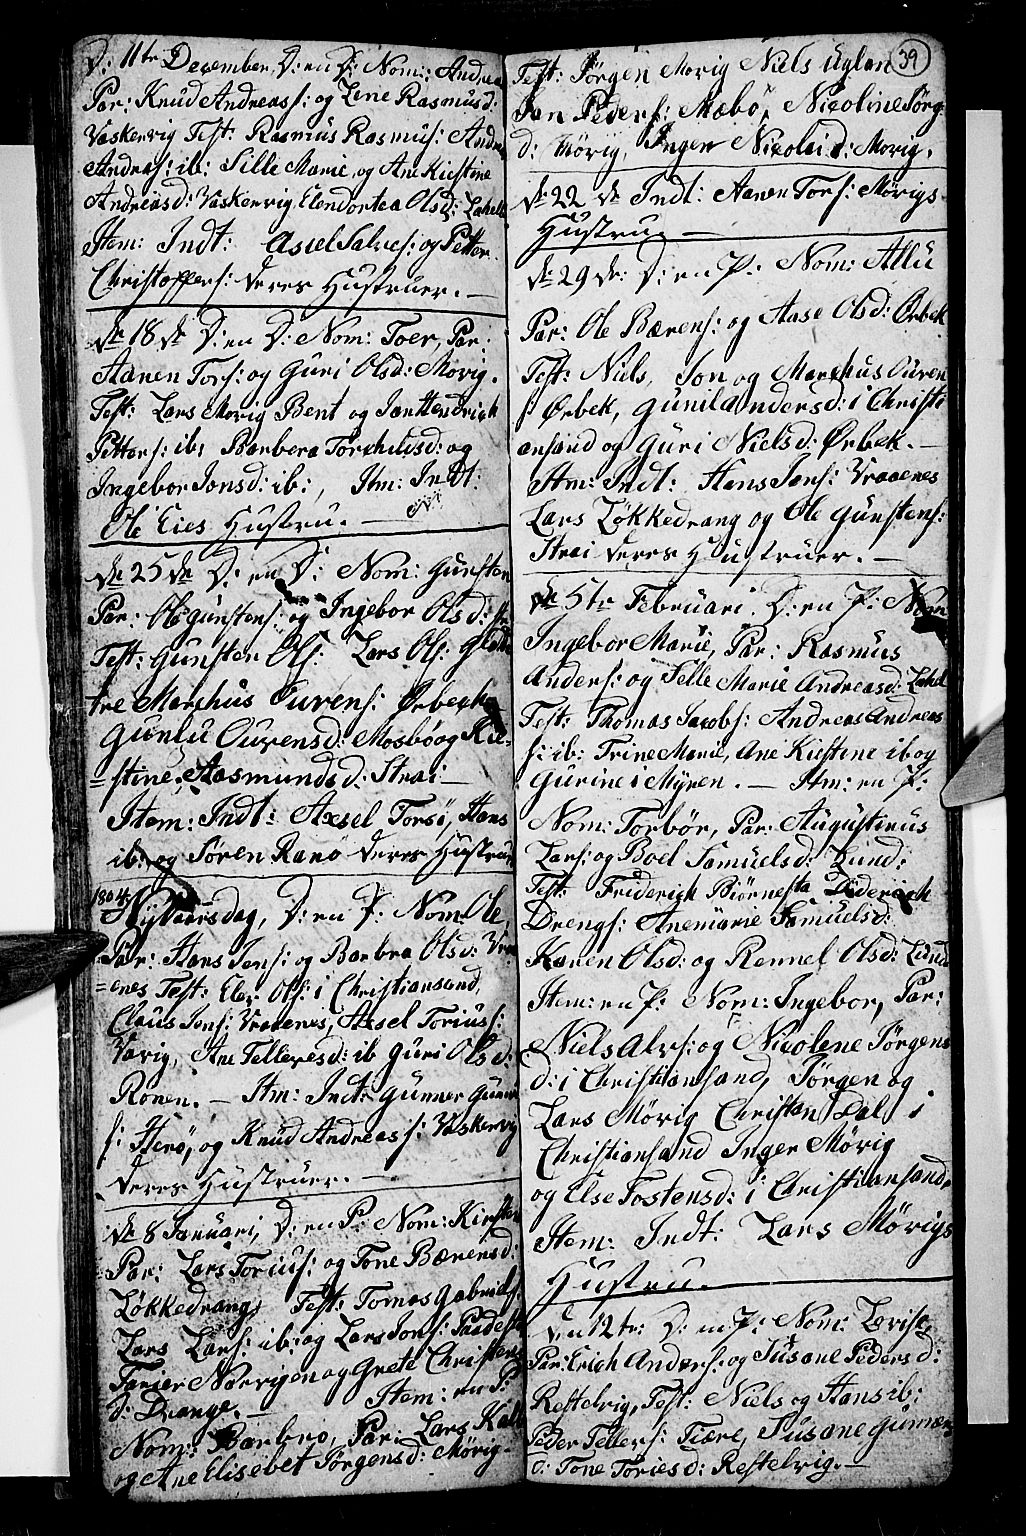 D: 11te December, D: en D: Nom: Andrea
Par: Knud Andreas: og Lene Rasmusd:
Vaskervig Test: Rasmus Rasmus: Andre
Andreas: ib: Sille Marie, og Ane Kirstine
Andreasd: Vaskervig, Elendortea Olsd:
Item: Indt: Axsel Salves: og Petter
Christoffers: deres Hustruer. —
dn 18 de D: en D: Nom: Toer, Par:
Aanen Tors: og Guri Olsd: Mörig.
Test: Lars Mörig Bent og Jan Hendrich
Petters: ib: Barbera Torchildsd: og
Ingebor Jonsd: ib:, Itm: Indt:
Ole Eies Hustru. —
dn 25 de D: en D: Nom: Gunsten
Par: Ole Gunstens: og Ingebor Olsd:
Test: Gunsten Ols: Lars Ols:
Marchus Ourens: Ørbeck
Gunlu Ourensd: Mosbö og Kir=
=stine Aasmundsd: Strai —
Item: Indt: Axsel Torsö, Hans
ib: og Sören Ranö deres Hustruer
1804 Nytaarsdag, D: en P: Nom: Ole
Par: Hans Jens: og Barbra Olsd: Vraa
=enes Test: Eler Ols: i Christiansand,
Claus Jens: Vraaenes, Axsel Torius:
Vaarig, Ane Tellevesd: ib Guri Olsd:
Ronen. — Itm: Indt: Gunner Gunner
s: Sterö, og Knud Andreas: Vaskervig
deres Hustruer. —
dn 8 Januari, D: en P: Nom: Kirsten
Par: Lars Torius: og Tone Bærensd:
Løkkedrang, Test: Tomas Gabriels:
Lars Lars: ib: og Lars Jons:
Tarjer Norvigen og Grete Christens
d: Drange. — Item: en P:
Nom: Barbro, Par: Lars
og Ane Elisebet Jörgensd: Mörig —
39
Test: Jörgen Mörig Niels Uglan
Jan Peders: Mæbö, Nicoline Jörg
d: Mörig, Inger Nicolaid: Mörig.
dn 22 de Indt: Aanen Tors: Mörigs
Hustru. —
dn 29 de: D: en P: Nom: Allu
Par: Ole Bærens: og Aase Olsd: Ørbek
Test: Niels, Jon og Marchus Ouren
s: Ørbek, Gunild Andersd: i Christi
ansand og Guri Nielsd: Ørbek. —
Itm: Indt: Hans Jens: Vraaenes
Lars Løkkedrang og Ole Gunstens:
Strai deres Hustruer. —
dn 5te Februari D: en P: Nom
Ingebor Marie, Par: Rasmus
Anders: og Selle Marie Andreasd:
Test: Thomas Jacobs: Andreas Andreas
s: ib: Trine Marie, Ane Kirstine ib og
Gurine i Myren. — Itm: en P:
Nom: Torbör, Par: Augustinus
Lars: og Boel Samuelsd: Lund:
Test: Friderich Biörnesta Diderich
Drengs: Anemarie Samuelsd:
Karen Olsd: og Rennel Olsd: Lund
Item: en P: Nom: Ingebor, Par:
Niels Alvs: og Nicolene Jörgens
d: i Christiansand, Jörgen og
Lars Mörig Christen Dal i
Christiansand Inger Mörig
og Else Tostensd: i Christiansand,
Item: Indt: Lars Mörigs
Hustru. —
den 12te: D: en P: Nom: Levise
Par: Erich Anders: og Susane Pedersd:
Restelvig, Test: Niels og Hans ib:
Peder Tellefs: Tiære, Susane Gunnars
d: Tone Toriesd: Restelvig. —